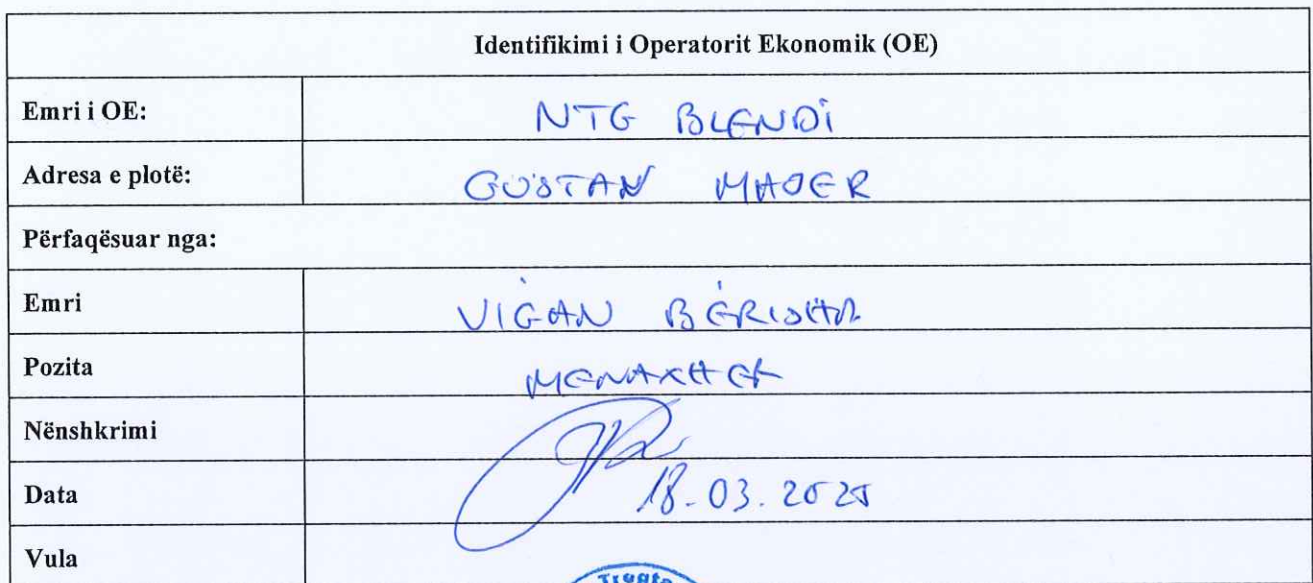 Identifikimi i Operatorit Ekonomik (OE)
Emri i OE: NTG BLENDi
Adresa e plotë: GUSTAN MAOER
Përfaqësuar nga:
Emri VIGAN BERISHA
Pozita MENAXHER
Nënshkrimi
Data 18-03.2025
Vula